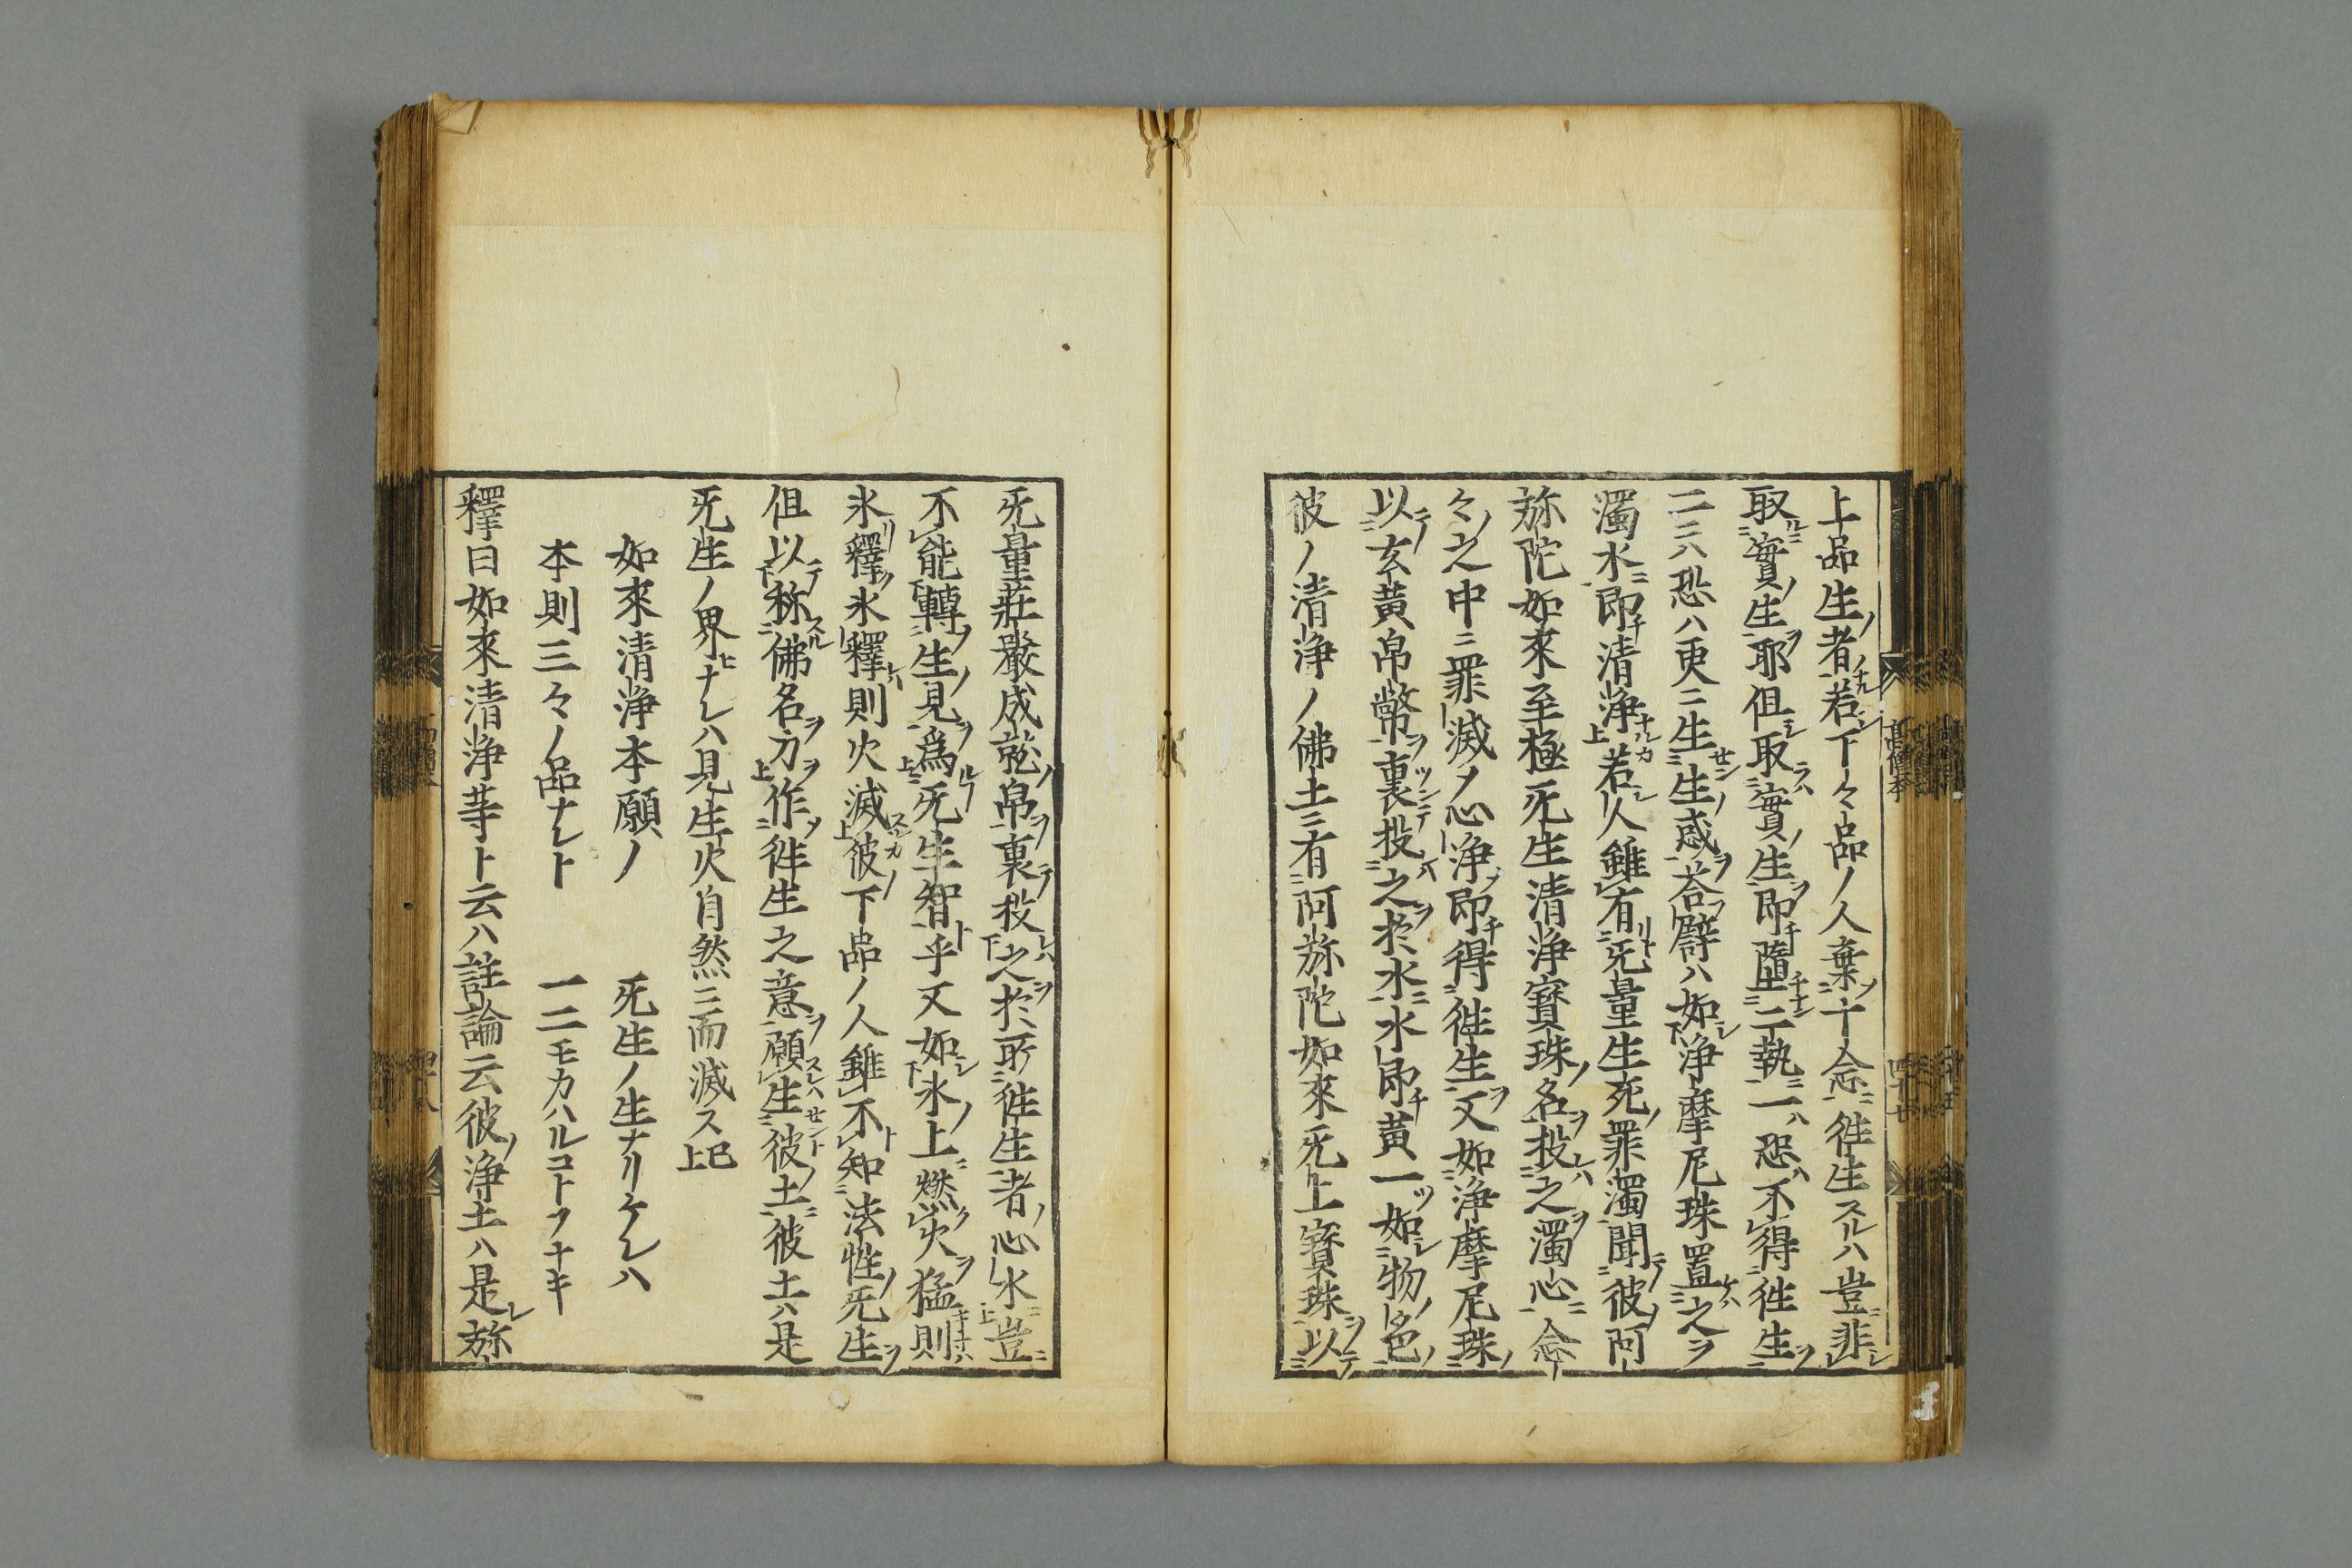 上品生者若下々品ノ人棄十念徃生スルハ豈非
取實生耶但取實生即墮二執一ハ恐不得徃生
二ニハ恐ハ更ニ生生惑荅譬ハ如浄摩尼珠置之ヲ
濁水ニ即清浄若人雖有无量生死罪濁聞彼阿
弥陀如來至極无生清浄寳珠名投之濁心念
々之中ニ罪滅メ心浄即得徃生又如浄摩尼珠
以玄黄帛幣裹投之於水水即黄一如物色
彼ノ清浄ノ佛土ニ有阿弥陀如來无上寳珠以
无量莊嚴成就帛裹投之於所徃生者心水豈
不能轉生見爲无生智乎又如氷上燃火猛則
氷釋氷釋則火滅彼下品ノ人雖不知法性无生
但以称佛名力作徃生之意願生彼土彼土ハ是
无生ノ界ナレハ見生火自然ニ而滅ス已上
如來清浄本願ノ 无生ノ生ナリケレハ
本則三々ノ品ナレト 一二モカハルコトソナキ
釋曰如來清浄等ト云ハ註論云彼浄土ハ是弥
高僧本
四十七